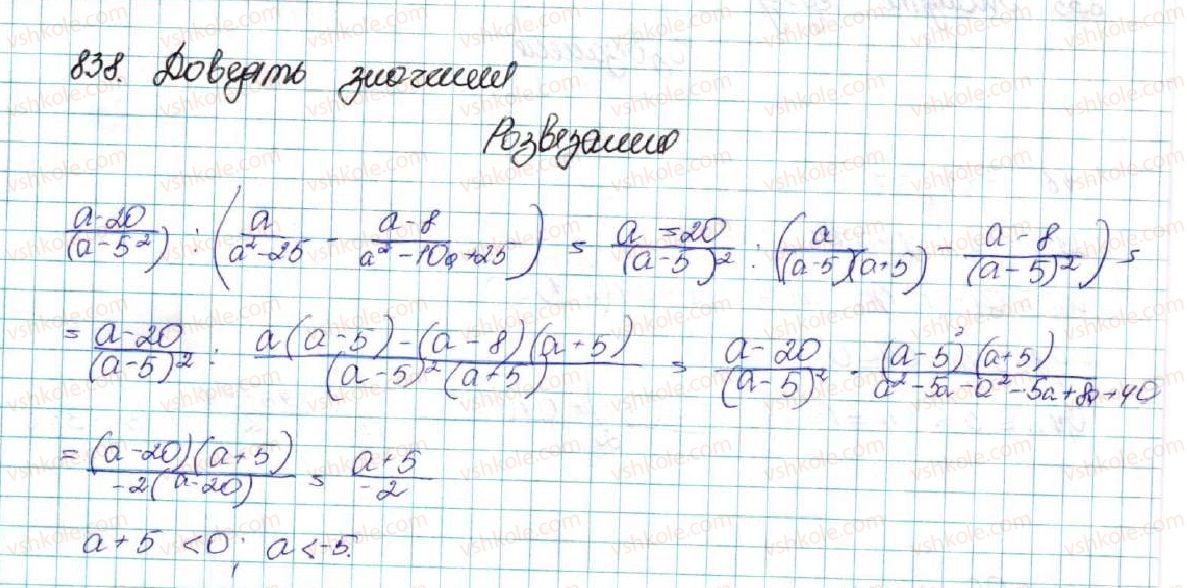 838. Доведіть значення
Розв'язання
(a-20)/(a-5²) : (a/(a²-25) - (a-8)/(a²-10a+25)) = (a-20)/(a-5)² : (a/((a-5)(a+5)) - (a-8)/(a-5)²) =
= (a-20)/(a-5)² : (a(a-5)-(a-8)(a+5))/((a-5)²(a+5)) = (a-20)/(a-5)² · ((a-5)²(a+5))/(a²-5a-a²-5a+8a+40)
= ((a-20)(a+5))/(-2(a-20)) = (a+5)/-2
a+5<0; a<-5.